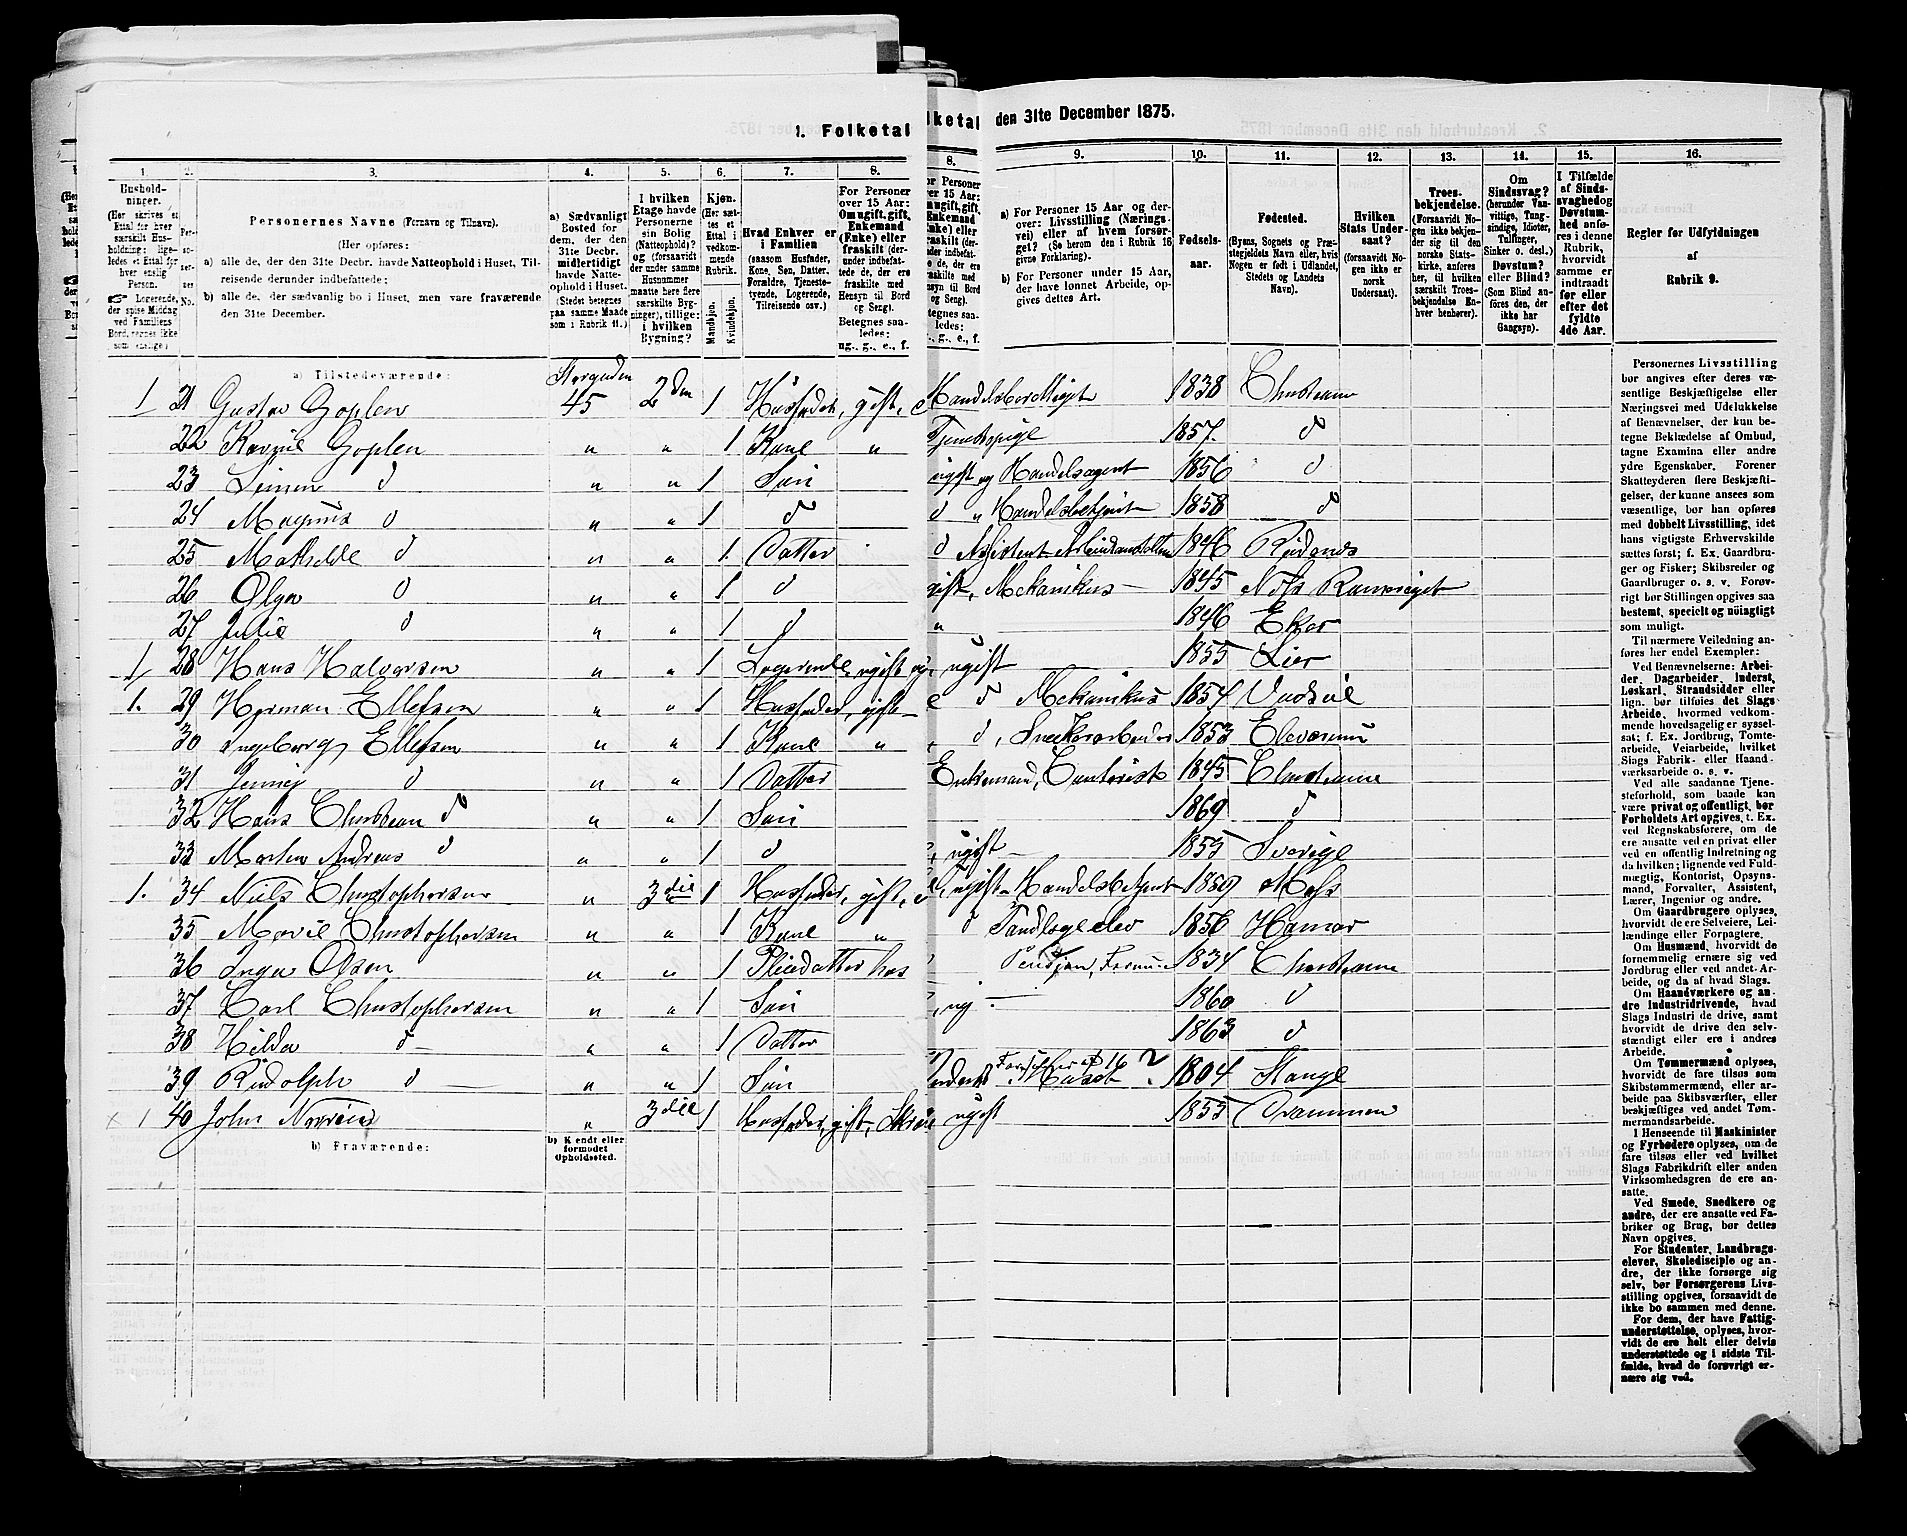 1. Folketal
lketal
den 31te December 1875.
1. 2. 3. 4. 5. 6. 7. 8.
8. 9. 10. 11. 12. 13. 14. 15. 16.
Personernes Navne (Fornavn og Tilnavn).
(Her opføres:
a) alle de, der den 31te Decbr. havde Natteophold i Huset, Tilreisende derunder indbefattede;
b) alle de, der sædvanlig bo i Huset, men vare fraværende den 31te December.
a) Sædvanligt Bosted for dem, der den 31te Decbr. midlertidigt havde Natteophold i Huset.
(Stedet betegnes paa samme Maade som i Rubrik 11.)
Kjøn.
(Her sættes et Ettal i vedkommende Rubrik.
Mandkjøn. Kvindekjøn.
Hvad Enhver er i Familien
(saasom Husfader, Kone, Søn, Datter, Forældre, Tjenestetyende, Logerende, Tilreisende osv.)
For Personer over 15 Aar: Om ugift, gift, Enkemand (Enke) eller fraskilt (derunder indbefattede de, der ere fraskilte med Hensyn til Bord og Seng).
Betegnes saaledes:
ug., g., e., f.
a) For Personer 15 Aar og derover: Livsstilling (Næringsvei) eller af hvem forsørget? (Se herom den i Rubrik 16 givne Forklaring).
b) For Personer under 15 Aar, der have lønnet Arbeide, opgives dettes Art.
Fødselsaar.
Fødested.
(Byens, Sognets og Præstegjeldets Navn eller, hvis Nogen er født i Udlandet, Stedets og Landets Navn).
Hvilken Stats Undersaat?
(forsaavidt Nogen ikke er norsk Undersaat).
Troesbekjendelse.
(Forsaavidt Nogen ikke bekjender sig til den norske Statskirke, anføres her, til hvilken særskilt Troesbekjendelse Enhver henhører).
Om Sindssvag?
(herunder Vanvittige, Tungsindige, Idioter, Tullinger, Sinker o. desl.)
Døvstum? eller Blind?
(Som Blind anføres den, der ikke har Gangsyn).
I Tilfælde af Sindssvaghed og Døvstumhed anføres i denne Rubrik, hvorvidt samme er indtraadt før eller efter det fyldte 4de Aar.
Regler for Udfyldningen af Rubrik 9.
a) Tilstedeværende:
1 21 Gustav Goplen Storgaden 45 2den 1 Husfader, gift,
22 Goplen " " 1 Kone "
23 Simen d " " 1 Søn
24 Magnus d " " 1 d
25 Mathilde d " " 1 Datter
26 Olga d " " 1 d
27 Julie d " " 1 d
1 28 Hans Halvorsen " " 1 Logerende ugift
1. 29 Herman Ellefsen " " 1 Husfader, gift
30 Ingeborg Ellefsen " " 1 Kone "
31 Jenny d " " 1 Datter
32 Hans Christian d " " 1 Søn
33 Morten Andreas d " " 1 d
1. 34 Niels Christophersen " 3die 1 Husfader, gift,
35 Marie Christophersen " " 1 Kone "
36 Inga Olsen " " 1 Pleiedatter hos
37 Carl Christophersen " " 1 Søn
38 Hilda d " " 1 Datter
39 Rudolph d " " 1 Søn
1 40 John " 3die 1 Husfader, gift,
b) Fraværende:
b) Kjendt eller formodet Opholdsted.
Handelsberettiget 1838 Christiania
Tjenestepige 1857. d
ugift og Handelsagent 1856 d
d " Handelsbetjent 1858 d
d Assistent 1846
gift, Mekanikus 1845
" 1846 Eker
ugift 1855 Lier
d Mekanikus 1854
d, Snekkerarbeider 1853 Elverum
Enkemand, Contorist 1845 Christiania
1869 d
ugift 1855 Sverige
ugift Handelsbetjent 1859 Moss
d Tandlægeelev 1856 Hamar
1834 Christiania
ug 1860 d
1863 d
1804 Stange
ugift 1855 Drammen
Personernes Livsstilling bør angives efter deres væsentlige Beskjæftigelse eller Næringsvei med Udelukkelse af Benævnelser, der kun betegne Beklædelse af Ombud, tagne Examina eller andre ydre Egenskaber. Forener Skatteyderen flere Beskjæftigelser, der kunne ansees som væsentlige, bør han opføres med dobbelt Livsstilling, idet hans vigtigste Erhvervskilde sættes først; f. Ex. Gaardbruger og Fisker; Skibsreder og Gaardbruger o. s. v. Forøvrigt bør Stillingen opgives saa bestemt, specielt og nøiagtigt som muligt.
Til nærmere Veiledning anføres her endel Exempler:
Ved Benævnelserne: Arbeider, Dagarbeider, Inderst, Løskarl, Strandsidder eller lign. bør tilføies det Slags Arbeide, hvormed vedkommende hovedsagelig er sysselsat; f. Ex. Jordbrug, Tomtearbeide, Veiarbeide, hvilket Slags Fabrik- eller Haandværksarbeide o. s. v.
Ved alle saadanne Tjenesteforhold, som baade kan være privat og offentligt, bør Forholdets Art opgives, t. Ex. ved Regnskabsførere, om de ere ansatte ved en privat eller ved en offentlig Indretning og da hvilken; lignende ved Fuldmægtig, Kontorist, Opsynsmand, Forvalter, Assistent, Lærer, Ingeniør og andre.
Om Gaardbrugere oplyses, hvorvidt de ere Selveiere, Leilændinge eller Forpagtere.
Om Husmænd, hvorvidt de fornemmelig ernære sig ved Jordbrug eller ved andet Arbeide, og da af hvad Slags.
Om Haandværkere og andre Industridrivende, hvad Slags Industri de drive, samt hvorvidt de drive den selvstændigt eller ere i andres Arbeide.
Om Tømmermænd oplyses, hvorvidt de fare tilsøs som Skibstømmermænd, eller arbeide paa Skibsværfter, eller beskjæftiges ved andet Tømmermandsarbeide.
I Henseende til Maskinister og Fyrbødere oplyses, om de fare tilsøs eller ved hvilket Slags Fabrikdrift eller anden Virksomhedsgren de ere ansatte.
Ved Smede, Snedkere og andre, der ere ansatte ved Fabriker og Brug, bør dettes Navn opgives.
For Studenter, Landbrugselever, Skoledisciple og andre, der ikke forsørge sig selv, bør Forsørgerens Livsstilling opgives, forsaavidt de ikke bo sammen med denne.
For dem, der have Fattigunderstøttelse, oplyses, hvorvidt de ere helt eller delvis understøttede og i sidste Tilfælde, hvad de forøvrigt ernære sig ved.